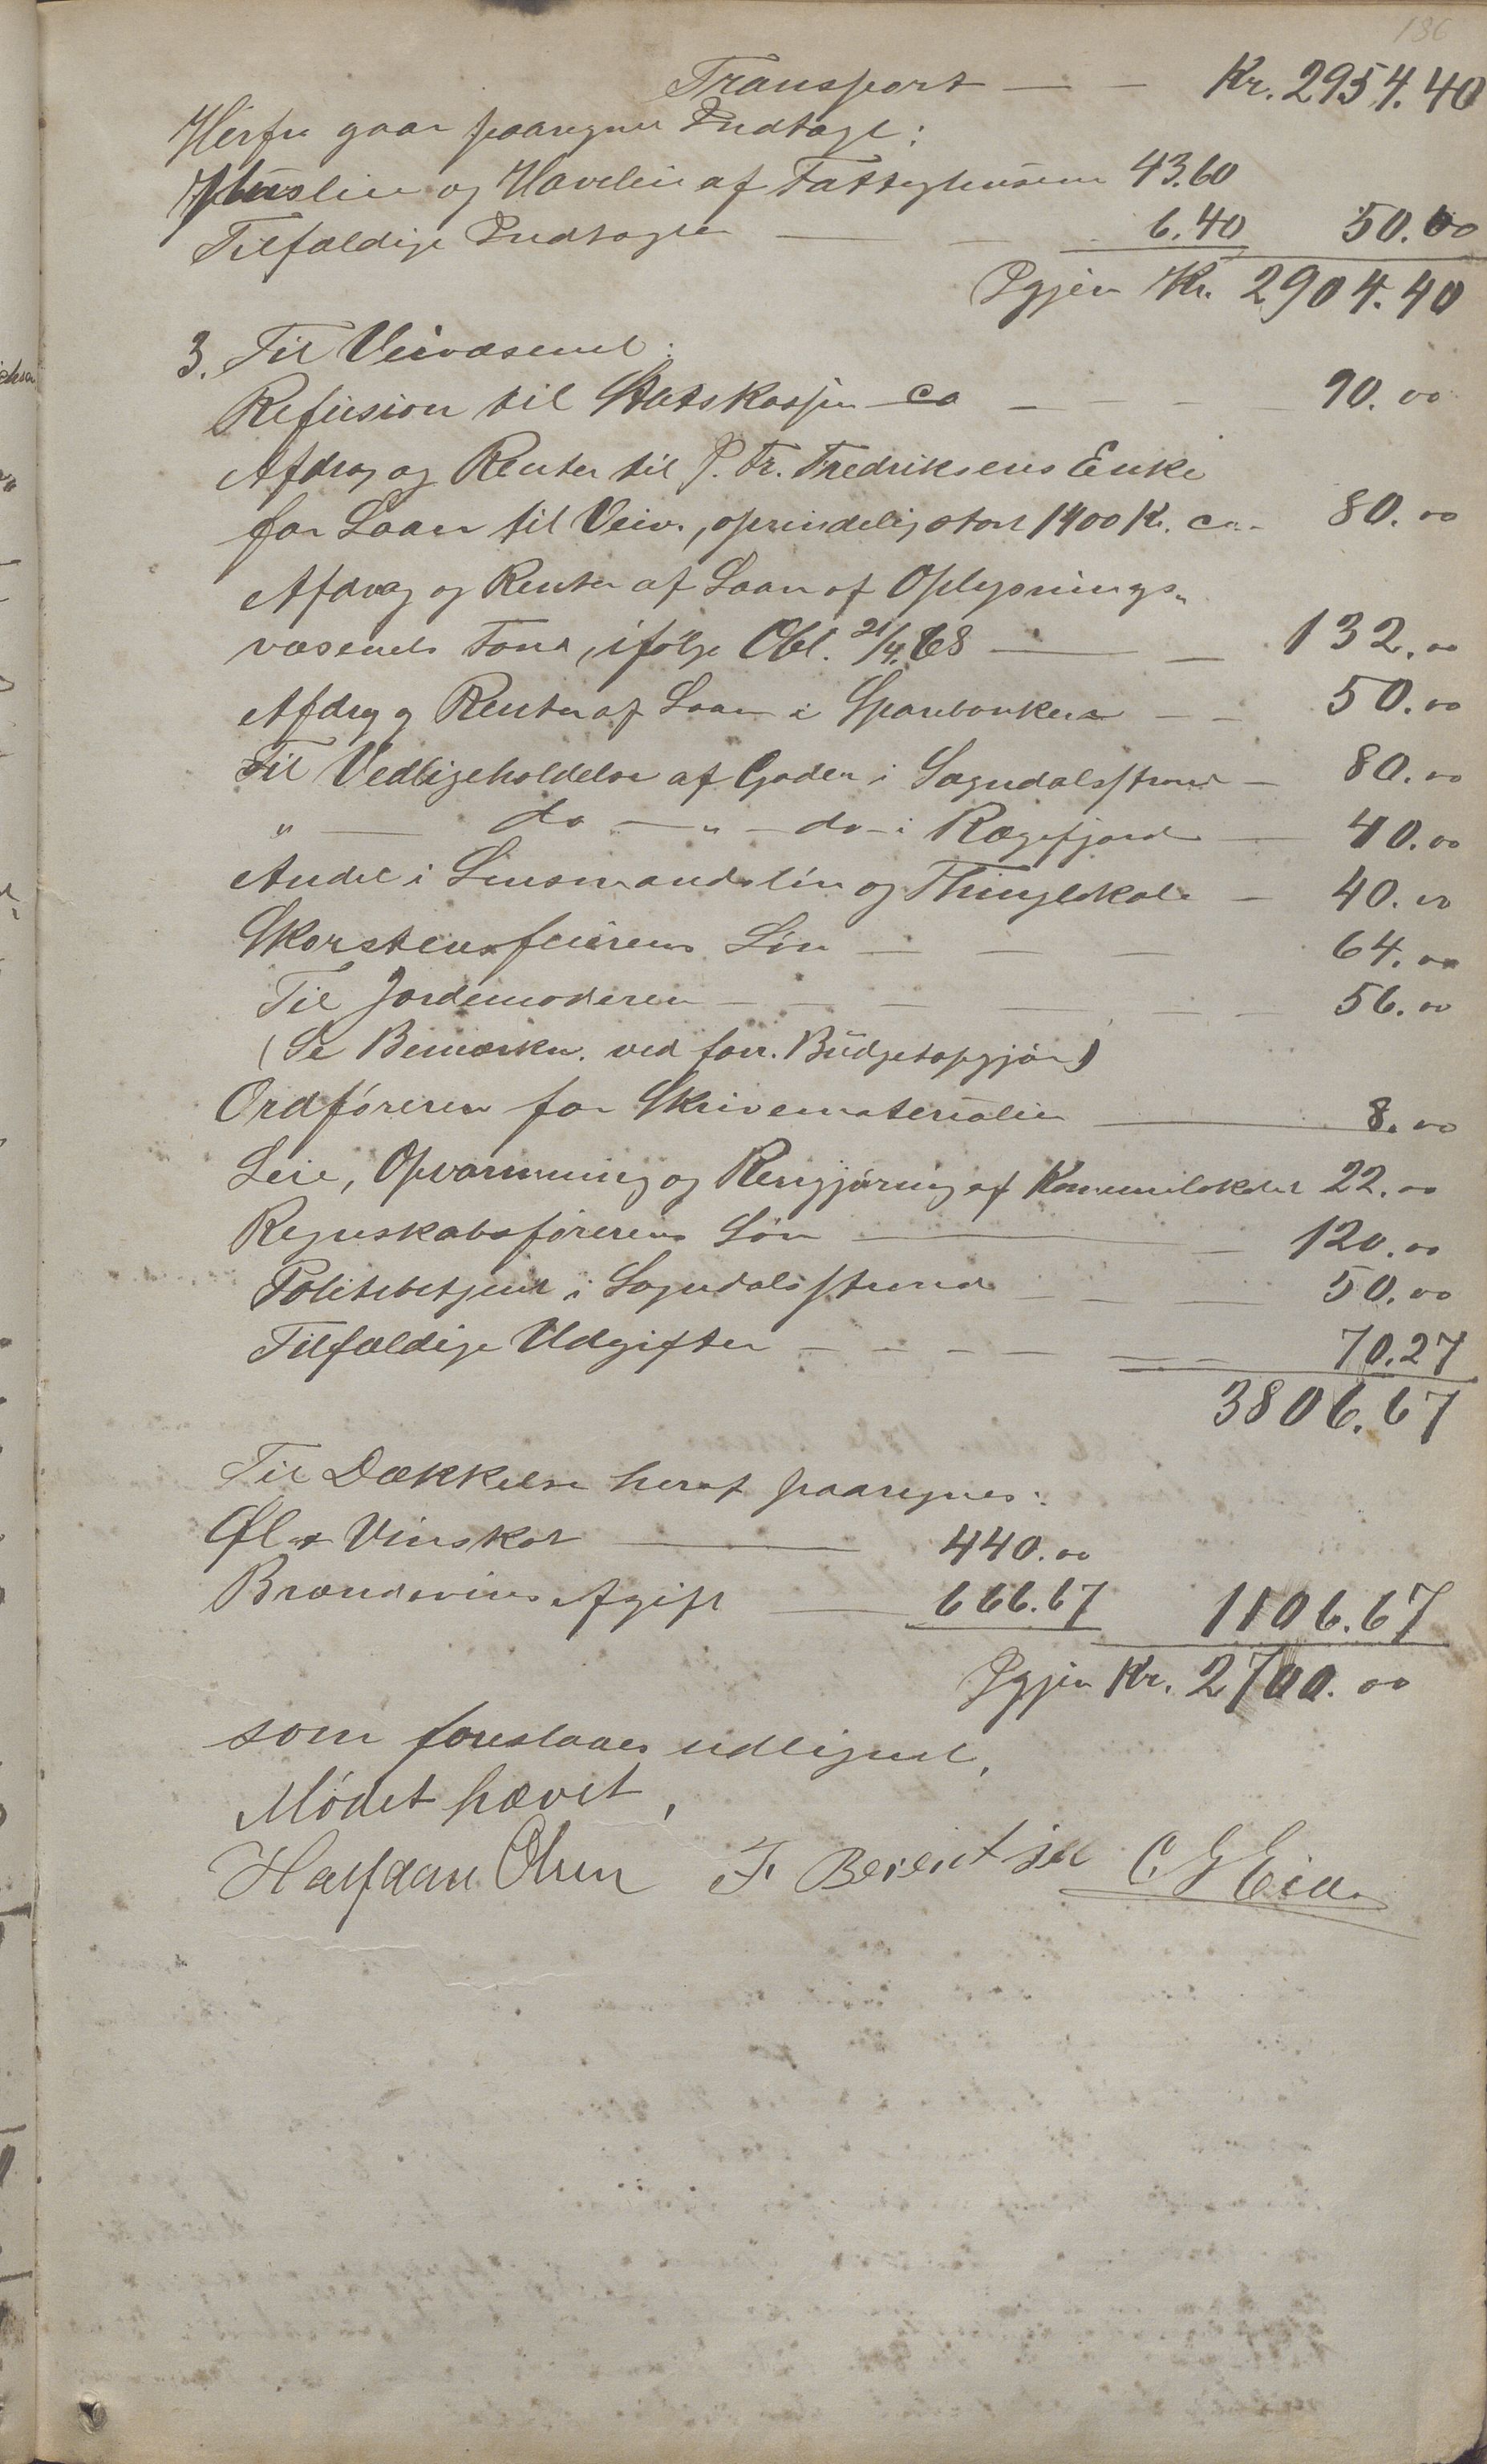 186
Transport — — Kr. 2954.40
Herfra gaar paaregnet Indtægt:
Huusleie og Haveleie af Fattighusene 43.60
Tilfældige Indtægter — 6.40 50.00
Igjen Kr. 2904.40
3. Til Veivæsenet:
Refusion til Statskassen ca — — — 90.00
Afdrag og Renter til P. Fr. Fredriksens Enke
for Laan til Veiv., oprindelig stort 1400 Kr. ca. 80.00
Afdrag og Renter af Laan af Oplysnings-
væsenets Fond, ifølge Obl. 21/4.68 — — 132.00
Afdrag og Renter af Laan i Sparebanken — — 50.00
Til Vedligeholdelse af Gaden i Sogndalsstrand — 80.00
" — do — " — do — i Rægefjord — 40.00
Andel i Lensmandsløn og Thinglokale — 40.00
Skorstensfeierens Løn — — — 64.00
Til Jordemoderen — — — — — 56.00
(Se Bemærkn. ved forr. Büdgetopgjør)
Ordføreren for Skrivematerialier — 8.00
Leie, Opvarmning og Rengjøring af Komunelokalet 22.00
Regnskabsførerens Løn — — 120.00
Politibetjent i Sogndalsstrand — — — 50.00
Tilfældige Udgifter — — — — — — 70.27
3806.67
Til Dækkelse heraf paaregnes:
Øl & Vinskat — 440.00
Brændevins Afgift — 666.67 1106.67
Igjen Kr. 2700.00
som foreslaaes udlignet.
Mødet hævet.
Halfdan Olsen F. Berentsen C G Eia